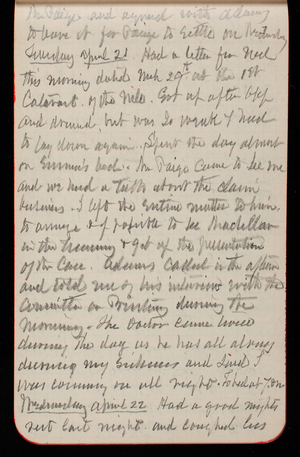 Mr Paige and agreed with Adams
to leave it for Paige to settle on Wednesday
Tuesday April 21 Had a letter from Ned
this morning dated Mch 29th at the 1st
Cataract of the Nile. Got up after bkf
and dressed, but was so weak I had
to lay down again. Spent the day almost
on Emma's bed. Mr Paige came to see me
and we had a talk about the claim
business. I left the entire matter to him
to arrange & if possible to see Macfellar
in the Treasury & get of the presentation
of the Case. Adams called in the afternoon
and told me of his interview with the
Committee on Printing during the
morning. The Doctor came twice
during the day as he has all along
during my sickness and said I
was coming on all right. To bed at 7.30
Wednesday April 22 Had a good nights
rest last night and coughed less